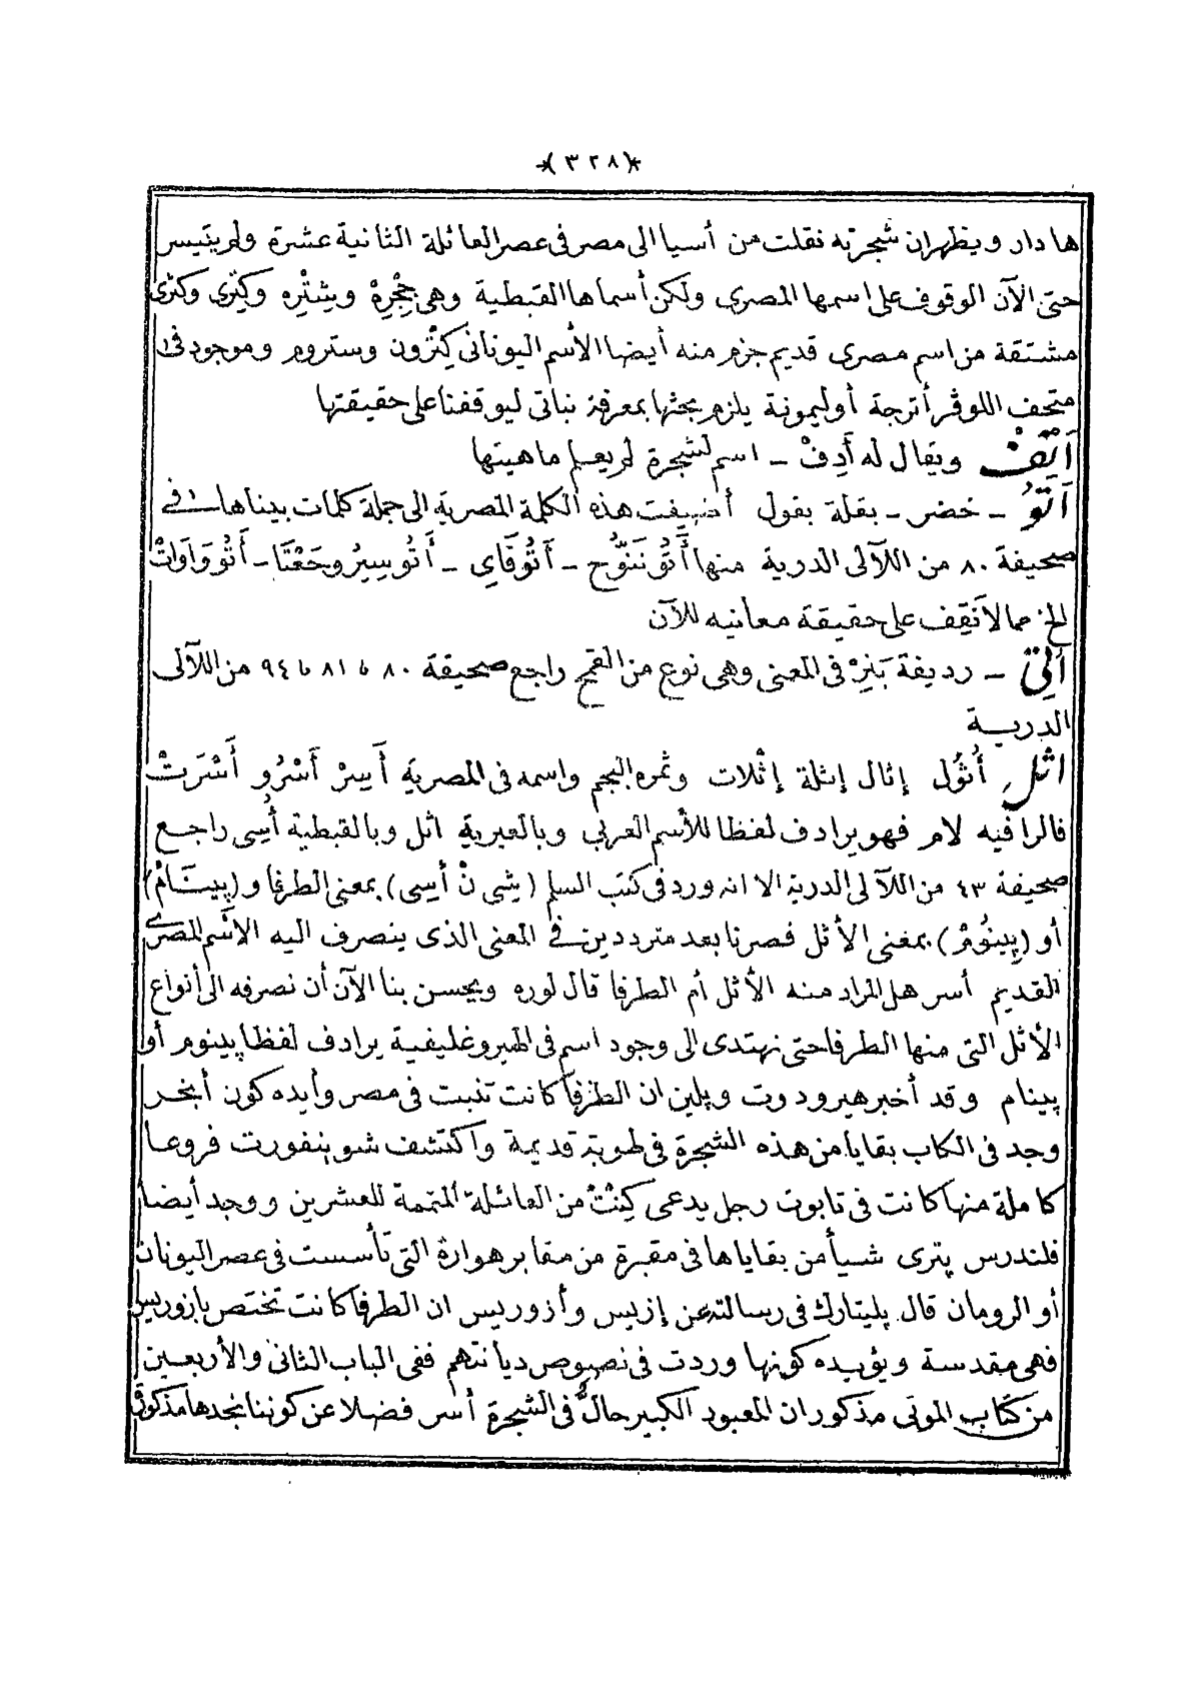 *(٣٢٨)*
هادار ويظهران شجرته نقلت من أسيا الى مصر فى عصر العائلة الثانية عشرة ولم يتيسر
حتى الآن الوقوف على اسمها المصرى ولكن أسماها القبطية وهى جِجْرِهْ ويشتْرِه وكِتْرى وكترى
مشتقة من اسم مصرى قديم جزم منه أيضا الأسم اليونانى كِتْرُون وستروم وموجود فى
متحف اللوڤر أترجة أوليمونة يلزم بحثها بمعرفة نباتى ليوقفنا على حقيقتها
اَتَفْ ويقال له أَدِفْ ـ اسم لشجرة لم يعلم ماهيتها
اَتُو ـ خضر ـ بقلة بقول أضيفت هذه الكلمة المصرية الى جملة كلمات بيناها فى
صحيفة ٨٠ من اللآلى الدرية منها أَتُو نَنوُّح ـ أَتُوقَاىِ ـ أَتُوسِيرُوحَعْتَا ـ أَتُووَاوَاتْ
الخ مما لا نقف على حقيقة معانيه للآن
أَتِى ـ رديفة بَنِرْ فى المعنى وهى نوع من القمح راجع صحيفة ٨٠ و ٨١ و ٩٤ من اللآلى
الدرية
اثل أُثُول إثال إثلة إثلات وثمره البجم واسمه فى المصرية أَيسِرْ أَسْرُو أَسْرَتْ
فالرا فيه لام فهو يرادف لفظا للأسم العربى وبالعبرية اثل وبالقبطية أُسِى راجع
صحيفة ٤٣ من اللآلى الدرية الا انه ورد فى كتب السلم (يشى نْ أسِى) بمعنى الطرفا و(پينَامْ)
أو (پِينُومْ) بمعنى الأثل فصرنا بعد مترددين فى المعنى الذى ينصرف اليه الاسم المصرى
القديم أسر هل المراد منه الأثل أم الطرفا قال لوره ويحسن بنا الآن أن نصرفه الى أنواع
الأثل التى منها الطرفا حتى نهتدى الى وجود اسم فى الهيروغليفية يرادف لفظا پينوم أو
پينام وقد أخبر هيرودوت وپلين ان الطرفا كانت تنبت فى مصر وأيده كون أنجر
وجد فى الكاب بقايا من هذه الشجرة فى طوبة قديمة واكتشف شوينفورت فروعا
كاملة منها كانت فى تابوت رجل يدعى كِنْتْ من العائلة المتممة للعشرين ووجد أيضا
فلندرس پترى شيأ من بقاياها فى مقبرة من مقابر هوارة التى تأسست فى عصر اليونان
أو الرومان قال پليتارك فى رسالته عن إزيس وأزوريس ان الطرفا كانت تختص بازوريس
فهى مقدسة ويؤيده كونها وردت فى نصوص ديانتهم ففى الباب الثانى والأربعين
من كتاب الموتى مذكور ان المعبود الكبير حالٌّ فى الشجرة أسر فضلا عن كوننا نجدها مذكورة